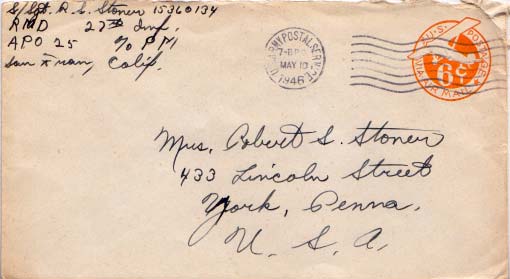 S/Sgt. R. S. Stoner 15360134
27th Inf.
APO 25 c/o P M
San Fran, Calif.
U.S. ARMY POSTAL SERVICE
MAY 10
1946
U.S. POSTAGE
6¢
VIA AIR MAIL
Mrs. Robert S. Stoner
433 Lincoln Street
York, Penna.
U. S. A.